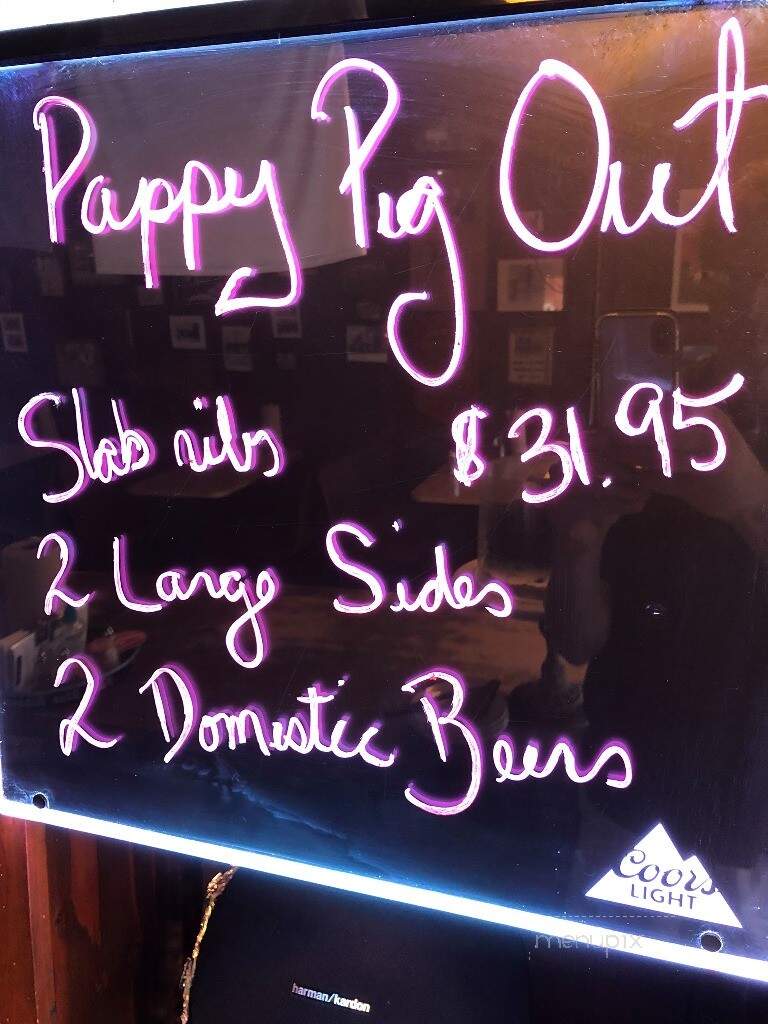 Pappy Pig Out
Slab ribs $31.95
2 Large Sides
2 Domestic Beers
Coors
LIGHT
menupix
harman/kardon